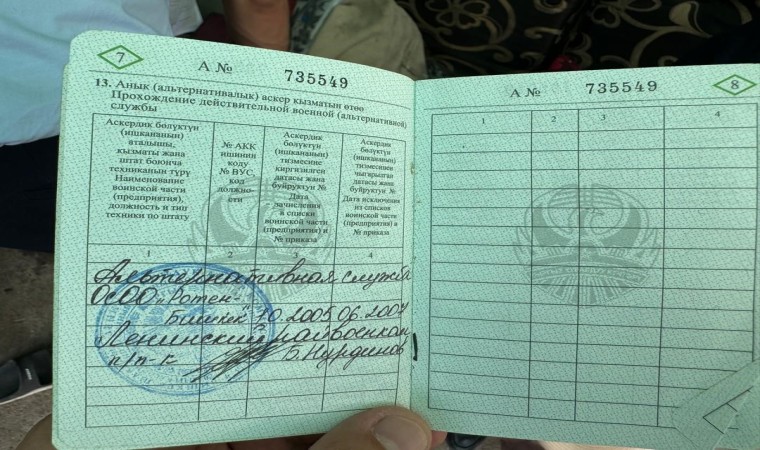 7
А № 735549
13. Анык (альтернативалык) аскер кызматын өтөө
Прохождение действительной военной (альтернативной)
службы
Аскердик бөлүктүн
(ишкананын)
аталышы,
кызматы жана
штат боюнча
техниканын түрү
Наименование
воинской части
(предприятия),
должность и тип
техники по штату
№ АКК
ишинин
коду
№ ВУС,
код
должно-
сти
Аскердик
бөлүктүн
(ишкананын)
тизмесине
киргизилген
датасы жана
буйруктун №
Дата
зачисления
в списки
воинской части
(предприятия) и
№ приказа
Аскердик
бөлүктүн
(ишкананын)
тизмесинен
чыгарылган
датасы жана
буйруктун №
Дата исключения
из списков
воинской части
(предприятия) и
№ приказа
1 2 3 4
Альтернативная служба
ОсОО "Ротен-
Бишкек" 10.2005 06.2007
Ленинский райвоенком
п/п-к Б.Нурдинов
А № 735549
8
1 2 3 4